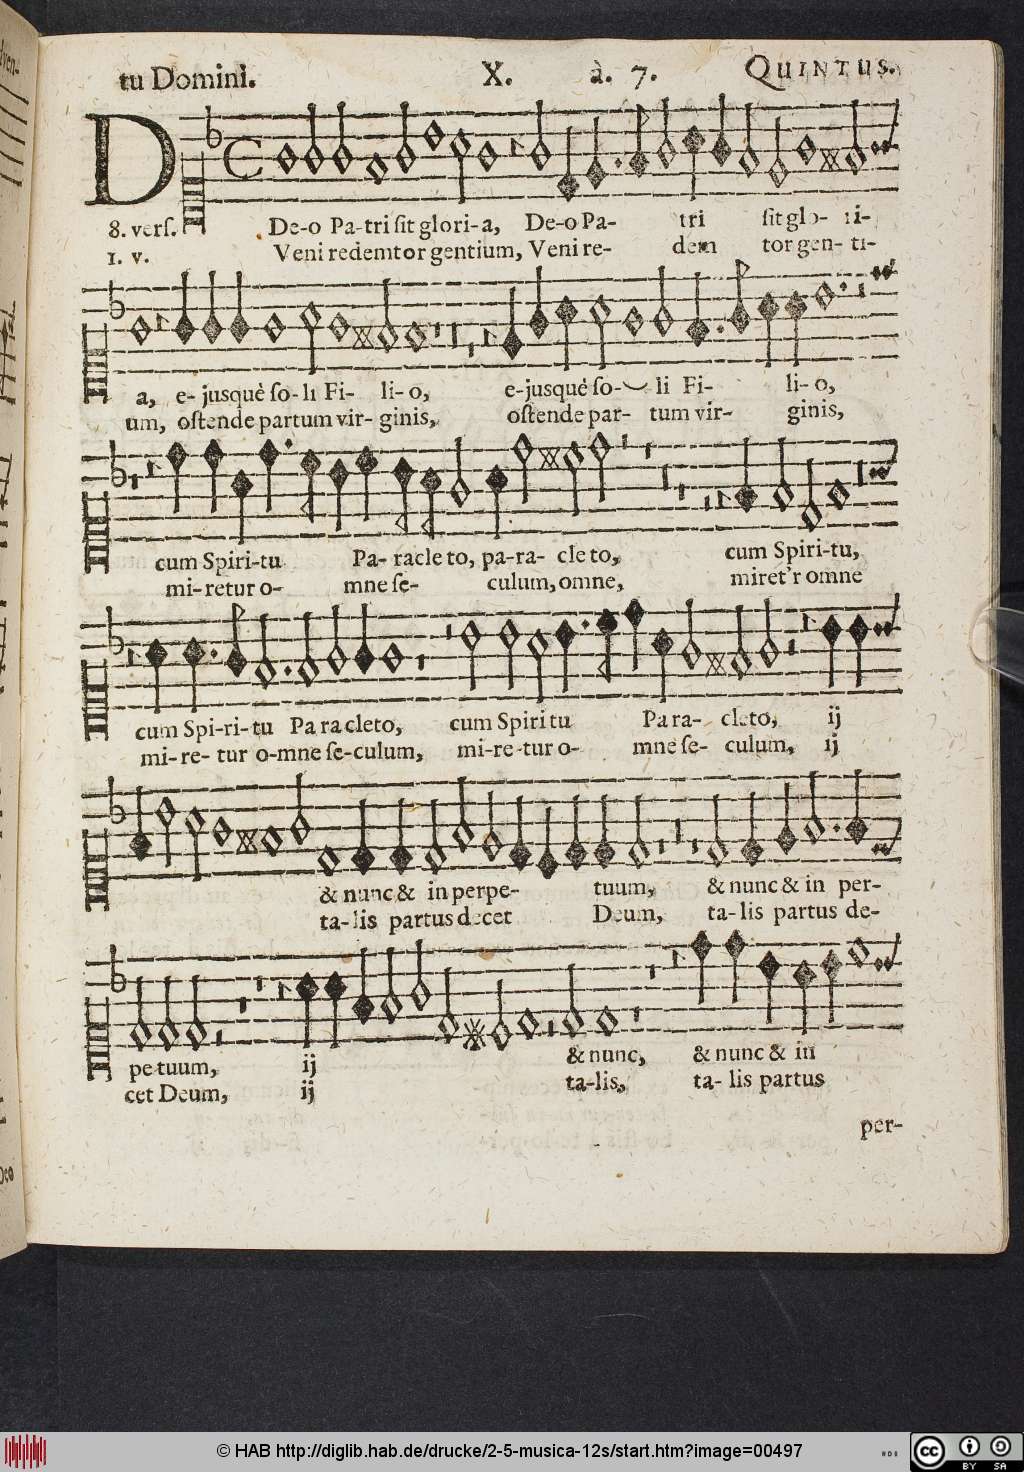 tu Domini. X. à. 7. QUINTUS.
D
8. vers. De-o Pa-tri sit glori-a, De-o Pa- tri sit glo- ri-
1. v. Veni redemtor gentium, Veni re- dem tor gen- ti-
a, e- jusquè so- li Fi- li- o, e-jusquè so- li Fi- li- o,
um, ostende partum vir- ginis, ostende par- tum vir- ginis,
cum Spiri-tu Pa- racle to, pa-ra- cle to, cum Spiri-tu,
mi-retur o- mne se- culum, omne, miret'r omne
cum Spi-ri-tu Pa ra cleto, cum Spiri tu Pa ra- cleto, ij
mi-re- tur o-mne se-culum, mi-re-tur o- mne se- culum, ij
& nunc & in perpe- tuum, & nunc & in per-
ta-lis partus decet Deum, ta-lis partus de-
pe tuum, ij & nunc, & nunc & in
cet Deum, ij ta-lis, ta- lis partus
per-
© HAB http://diglib.hab.de/drucke/2-5-musica-12s/start.htm?image=00497
cc BY SA